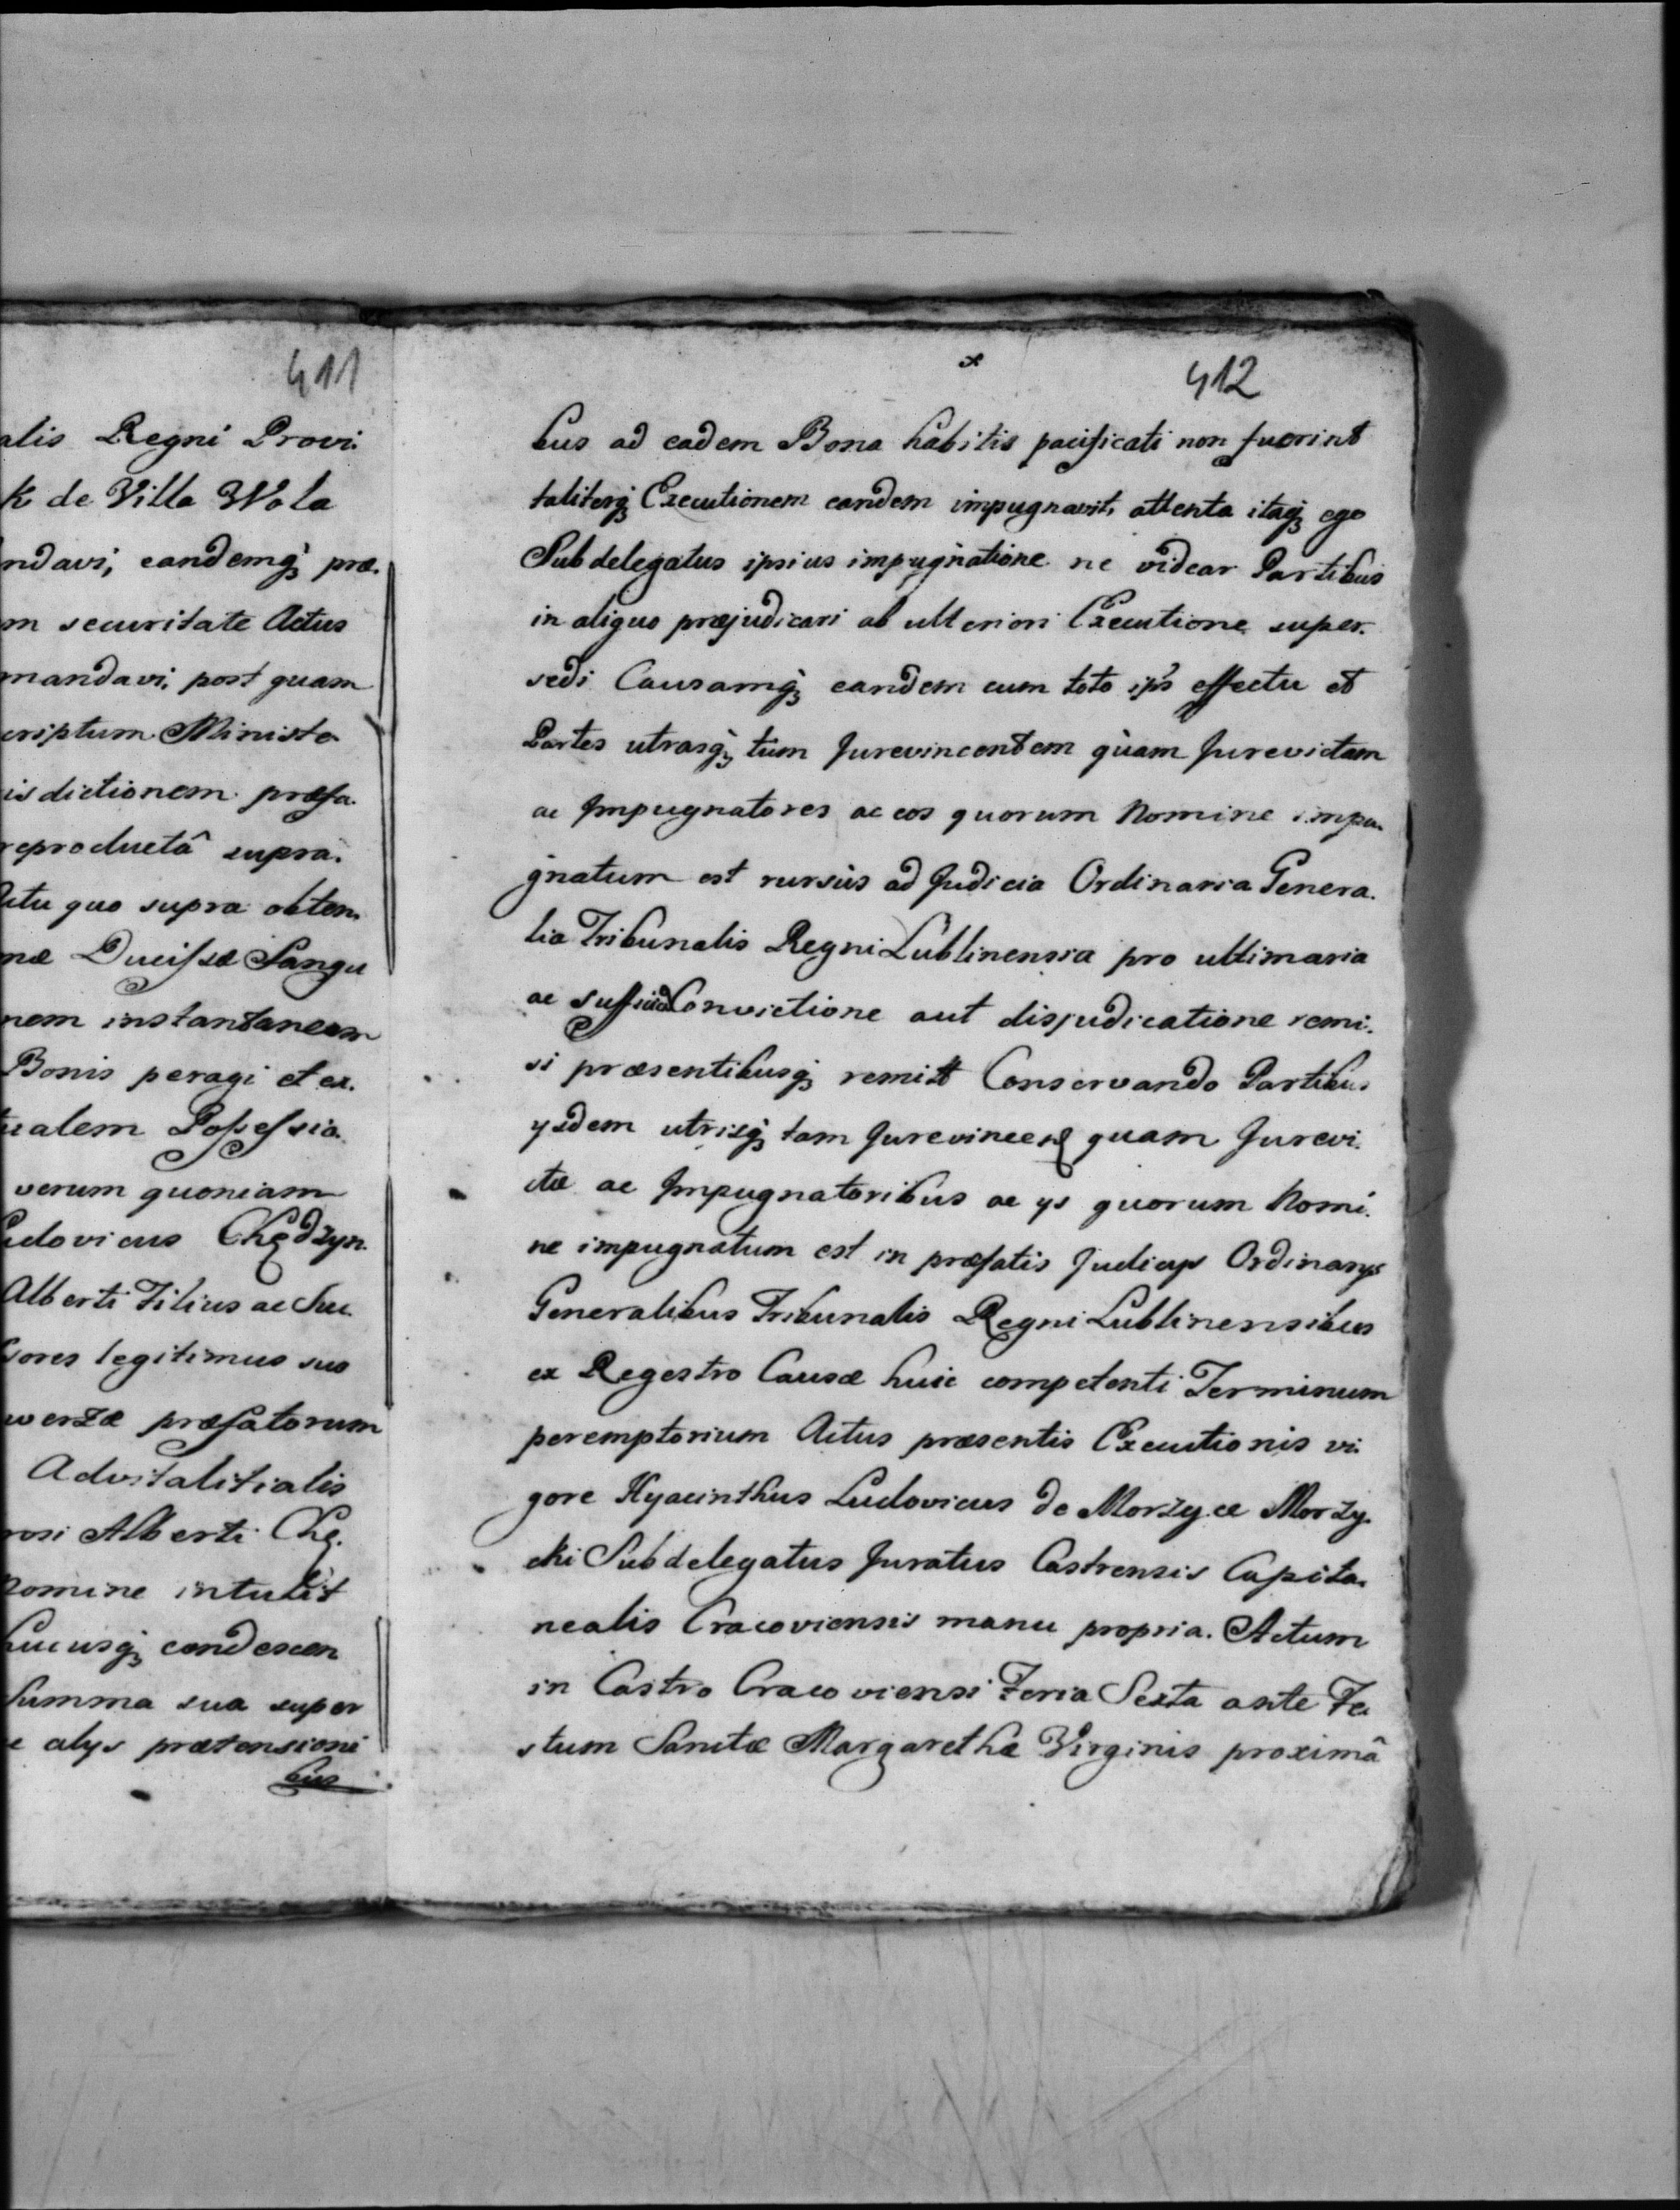 411
alis Regni Provi.
k de Villa Wola
ndavi, eandemq; præ.
m securitate Actus
mandavi, post quam
criptum Ministe
isdictionem præfa.
reproductâ supra.
itu quo supra obten.
næ Ducissæ Sangu
nem instantaneam
Bonis peragi et ex.
ualem Possessio.
verum quoniam
udovicus Chędzyn.
Alberti Filius ac Suc.
sores legitimus suo
werzæ præfatorum
Advitalitialis
rosi Alberti Chę.
nomine intulit
hucusq; condescen
Summa sua super
e alys prætensioni
bus
412
bus ad eadem Bona habitis pacificati non fuerint
taliterq; Executionem eandem impugnavit, attenta itaq; ego
Subdelegatus ipsius impugnatione ne videar Partibus
in aliquo præjudicari ab ulteriori Executione super.
sedi Causamq; eandem cum toto ips effectu et
Partes utrasq; tum Jurevincentem quam Jurevictam
ac Impugnatores ac eos quorum Nomine impu.
gnatum est rursus ad Judicia Ordinaria Genera.
lia Tribunalis Regni Lublinensia pro ultimaria
ac Convictione aut disjudicatione remi.
si præsentibusq; remitt Conservando Partibus
ysdem utrisq; tam quam Jurevi.
ctæ ac Impugnatoribus ac ys quorum Nomi.
ne impugnatum est in præfatis Judicys Ordinarys
Generalibus Tribunalis Regni Lublinensibus
ex Regestro Causæ huic competenti Terminum
peremptorium Actus præsentis Executionis vi.
gore Hyacinthus Ludovicus de Morzyce Morzy.
cki Subdelegatus Juratus Castrensis Capita.
nealis Cracoviensis manu propria. Actum
in Castro Cracoviensi Feria Sexta ante Fe
stum Sanctæ Margarethæ Virginis proximâ